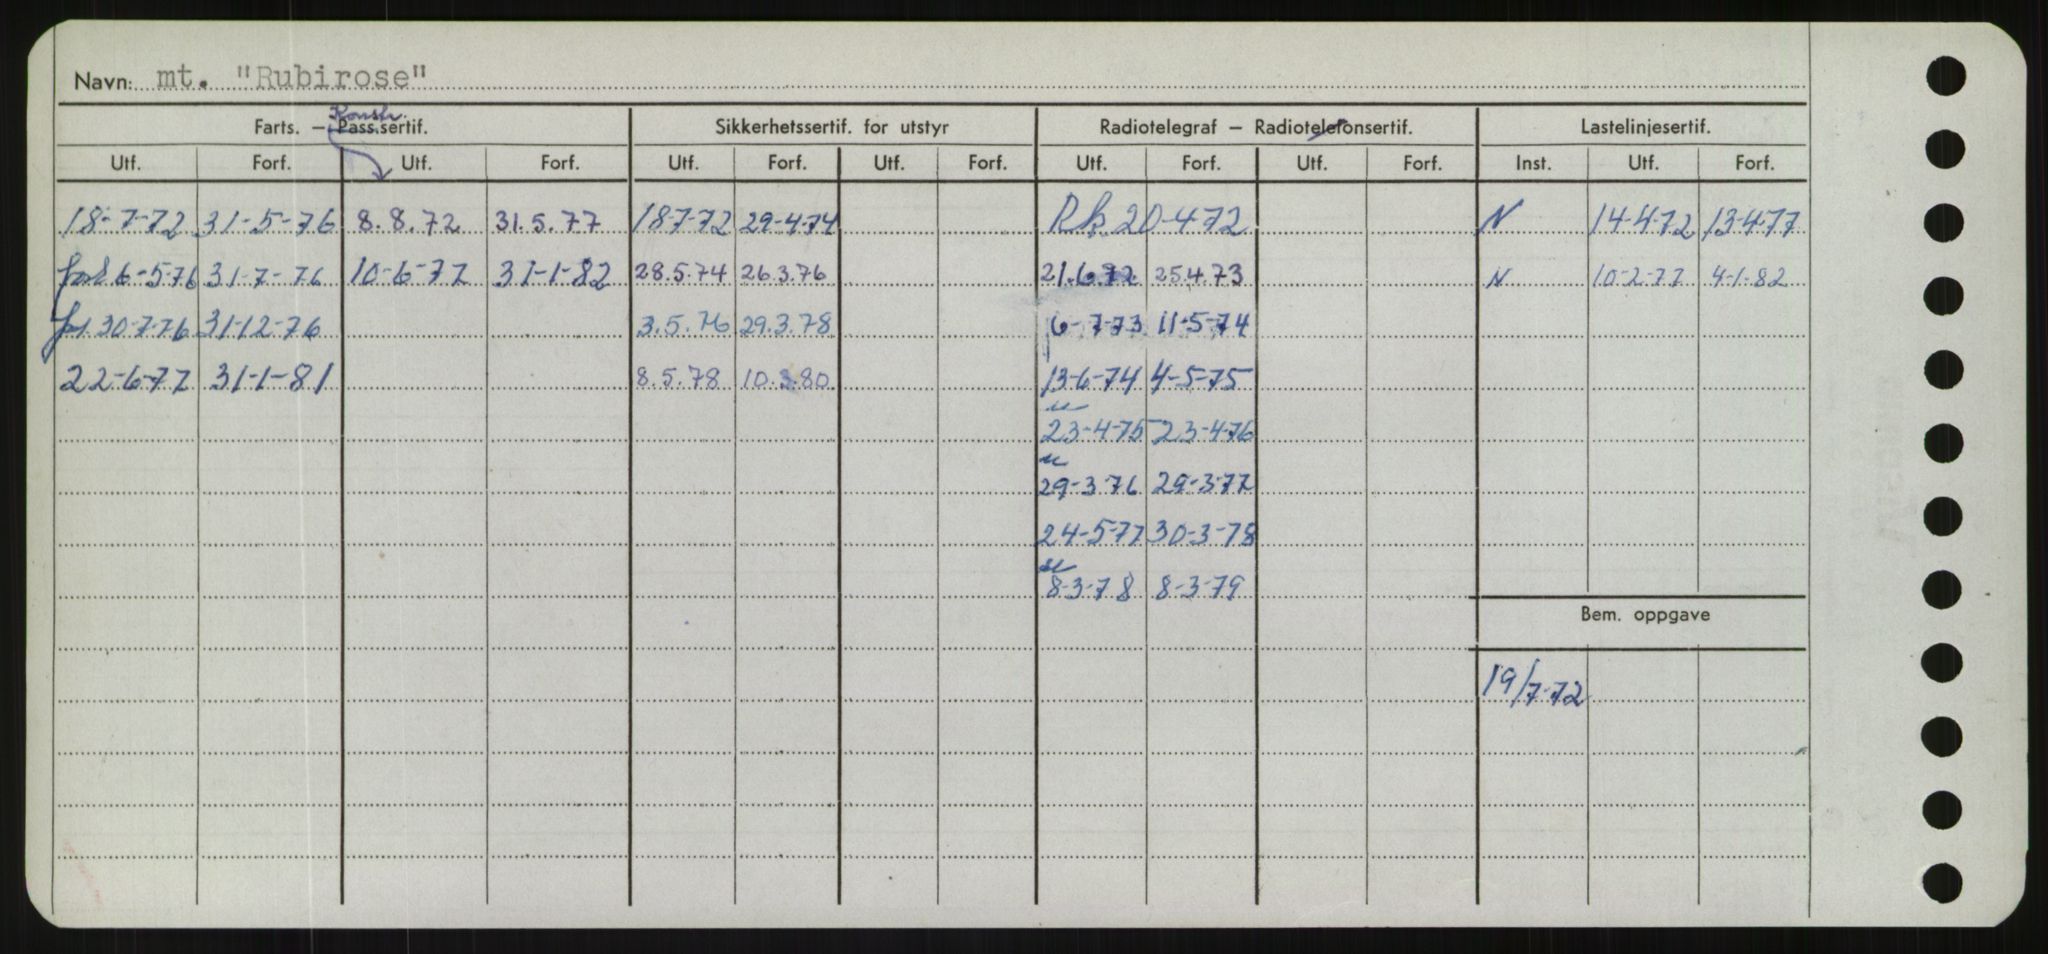 Navn: mt. "Rubirose"
Konstr.
Farts. — Pass.sertif. Sikkerhetssertif. for utstyr Radiotelegraf — Radiotelefonsertif. Lastelinjesertif.
Utf. Forf. Utf. Forf. Utf. Forf. Utf. Forf. Utf. Forf. Utf. Forf. Inst. Utf. Forf.
18-7-72 31-5-76 8.8.72 31.5.77 18-7-72 29-4-74 Rk. 20-4-72 N 14-4-72 13-4-77
6-5-76 31-7-76 10-6-77 31-1-82 28.5.74 26.3.76 21.6.72 25.4.73 N 10-2-77 4-1-82
30-7-76 31-12-76 3.5.76 29.3.78 6-7-73 11-5-74
22-6-77 31-1-81 8.5.78 10.3.80 13-6-74 4-5-75
23-4-75 23-4-76
29-3-76 29-3-77
24-5-77 30-3-78
8-3-78 8-3-79
Bem. oppgave
19/7-72